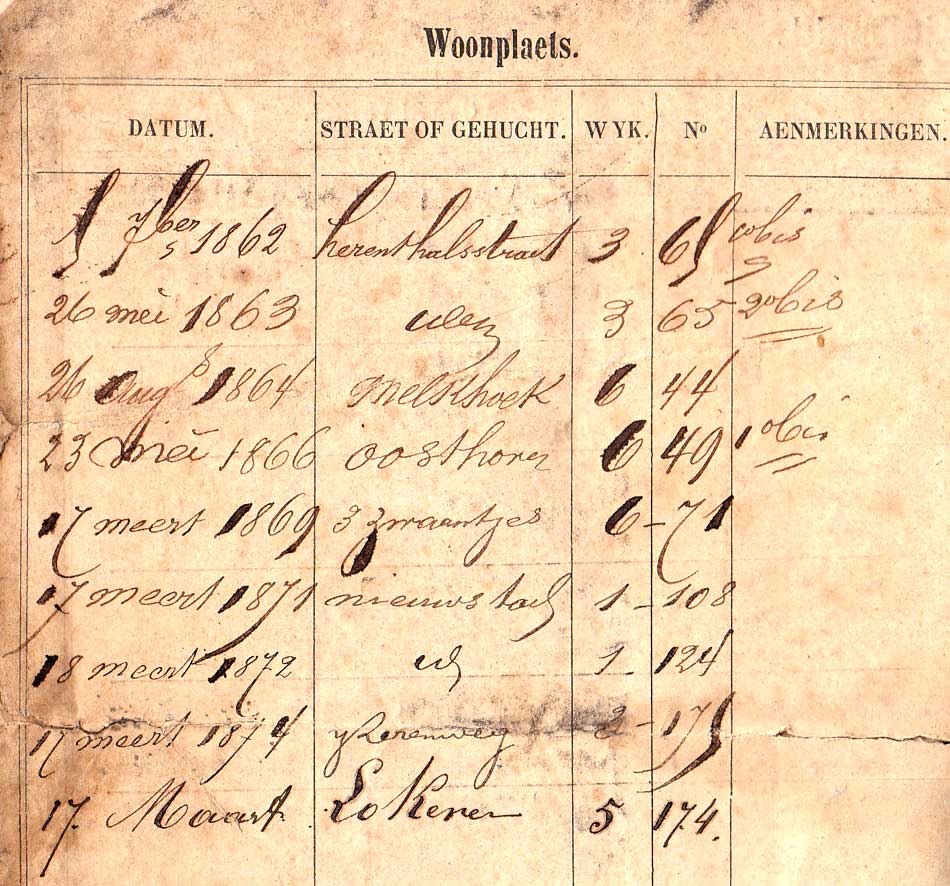 Woonplaets.
DATUM. STRAET OF GEHUCHT. WYK. No AENMERKINGEN.
7ber 1862 herenthalsstraet 3 65 bis
26 mei 1863 3 65 bis
26 Augs 1864 melkhoek 6 44
23 mei 1866 oosthoven 6 49 bis
17 meert 1869 3 zwaantjes 6 - 71
17 meert 1871 nieuwstad 1 - 108
18 meert 1872 id 1 - 124
17 meert 1874 - 175
17. Maart Lokeren 5 174.